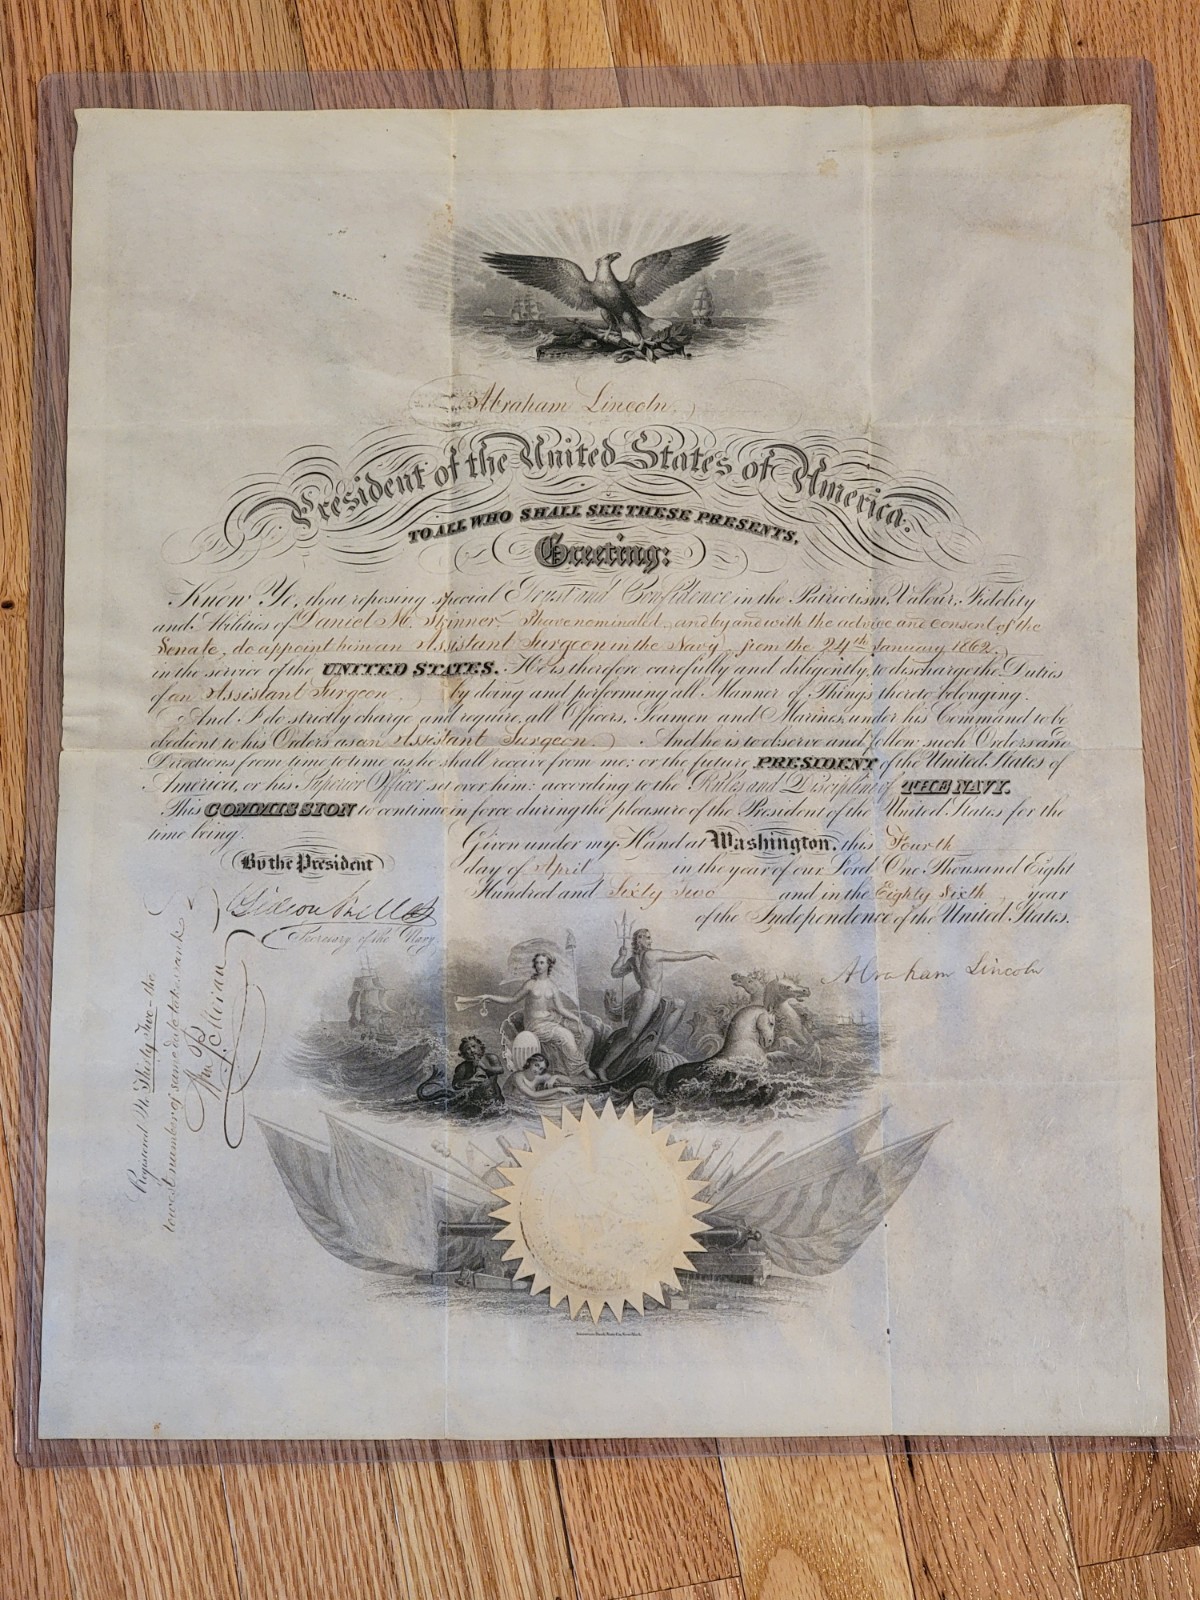 Abraham Lincoln,
President of the United States of America.
TO ALL WHO SHALL SEE THESE PRESENTS,
Greeting:
Know Ye, that reposing special Trust and Confidence in the Patriotism, Valour, Fidelity
and Abilities of Daniel M. Skinner, I have nominated, and by and with the advice and consent of the
Senate, do appoint him an Assistant Surgeon in the Navy, from the 24th January 1862,
in the service of the UNITED STATES. He is therefore carefully and diligently to discharge the Duties
of an Assistant Surgeon, by doing and performing all Manner of Things thereto belonging.
And I do strictly charge and require all Officers, Seamen and Marines under his Command to be
obedient to his Orders as an Assistant Surgeon. And he is to observe and follow such Orders and
Directions from time to time as he shall receive from me; or the future PRESIDENT of the United States of
America, or his Superior Officer set over him: according to the Rules and Discipline of THE NAVY.
This COMMISSION to continue in force during the pleasure of the President of the United States for the
time being.
Given under my Hand at Washington, this Fourth
day of April in the year of our Lord One Thousand Eight
Hundred and Sixty Two and in the Eighty Sixth year
of the Independence of the United States.
Abraham Lincoln
By the President
Gideon Welles
Secretary of the Navy.
Registered No. Thirty Two - the
lowest number of same date takes rank
American Bank Note Co. New York